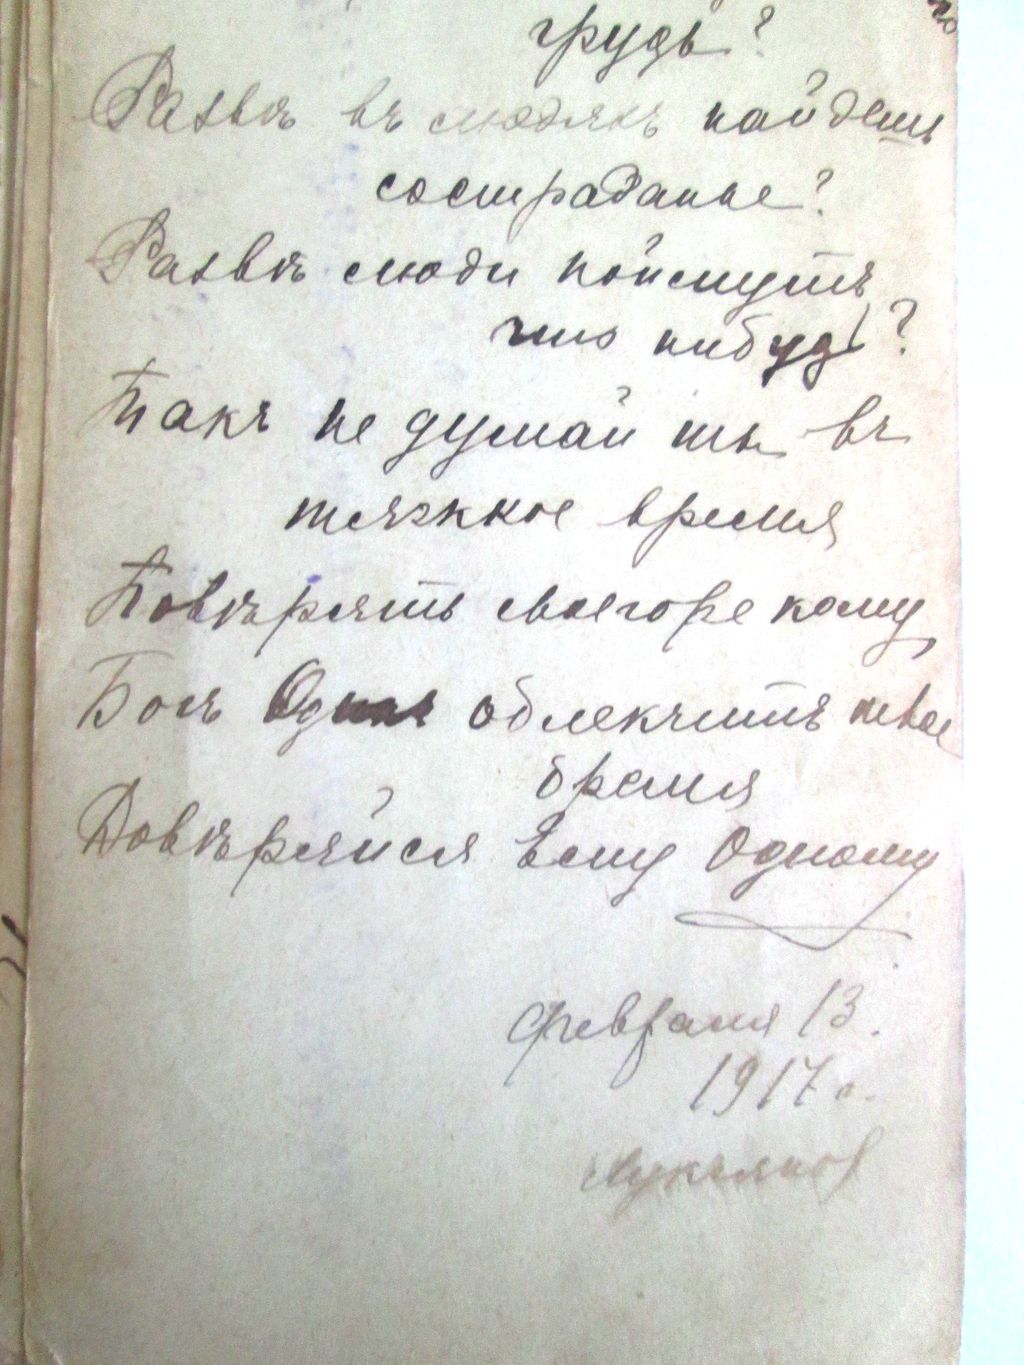 грудь?
Развѣ въ людяхъ найдешь
состраданье?
Развѣ люди поймутъ
что нибудь?
Такъ не думай ты въ
тяжкое время
Повѣрять свое горе кому
Богъ Одинъ облекчитъ
бремя
Довѣряйся Ему Одному
Февраля 13.
1917 г.